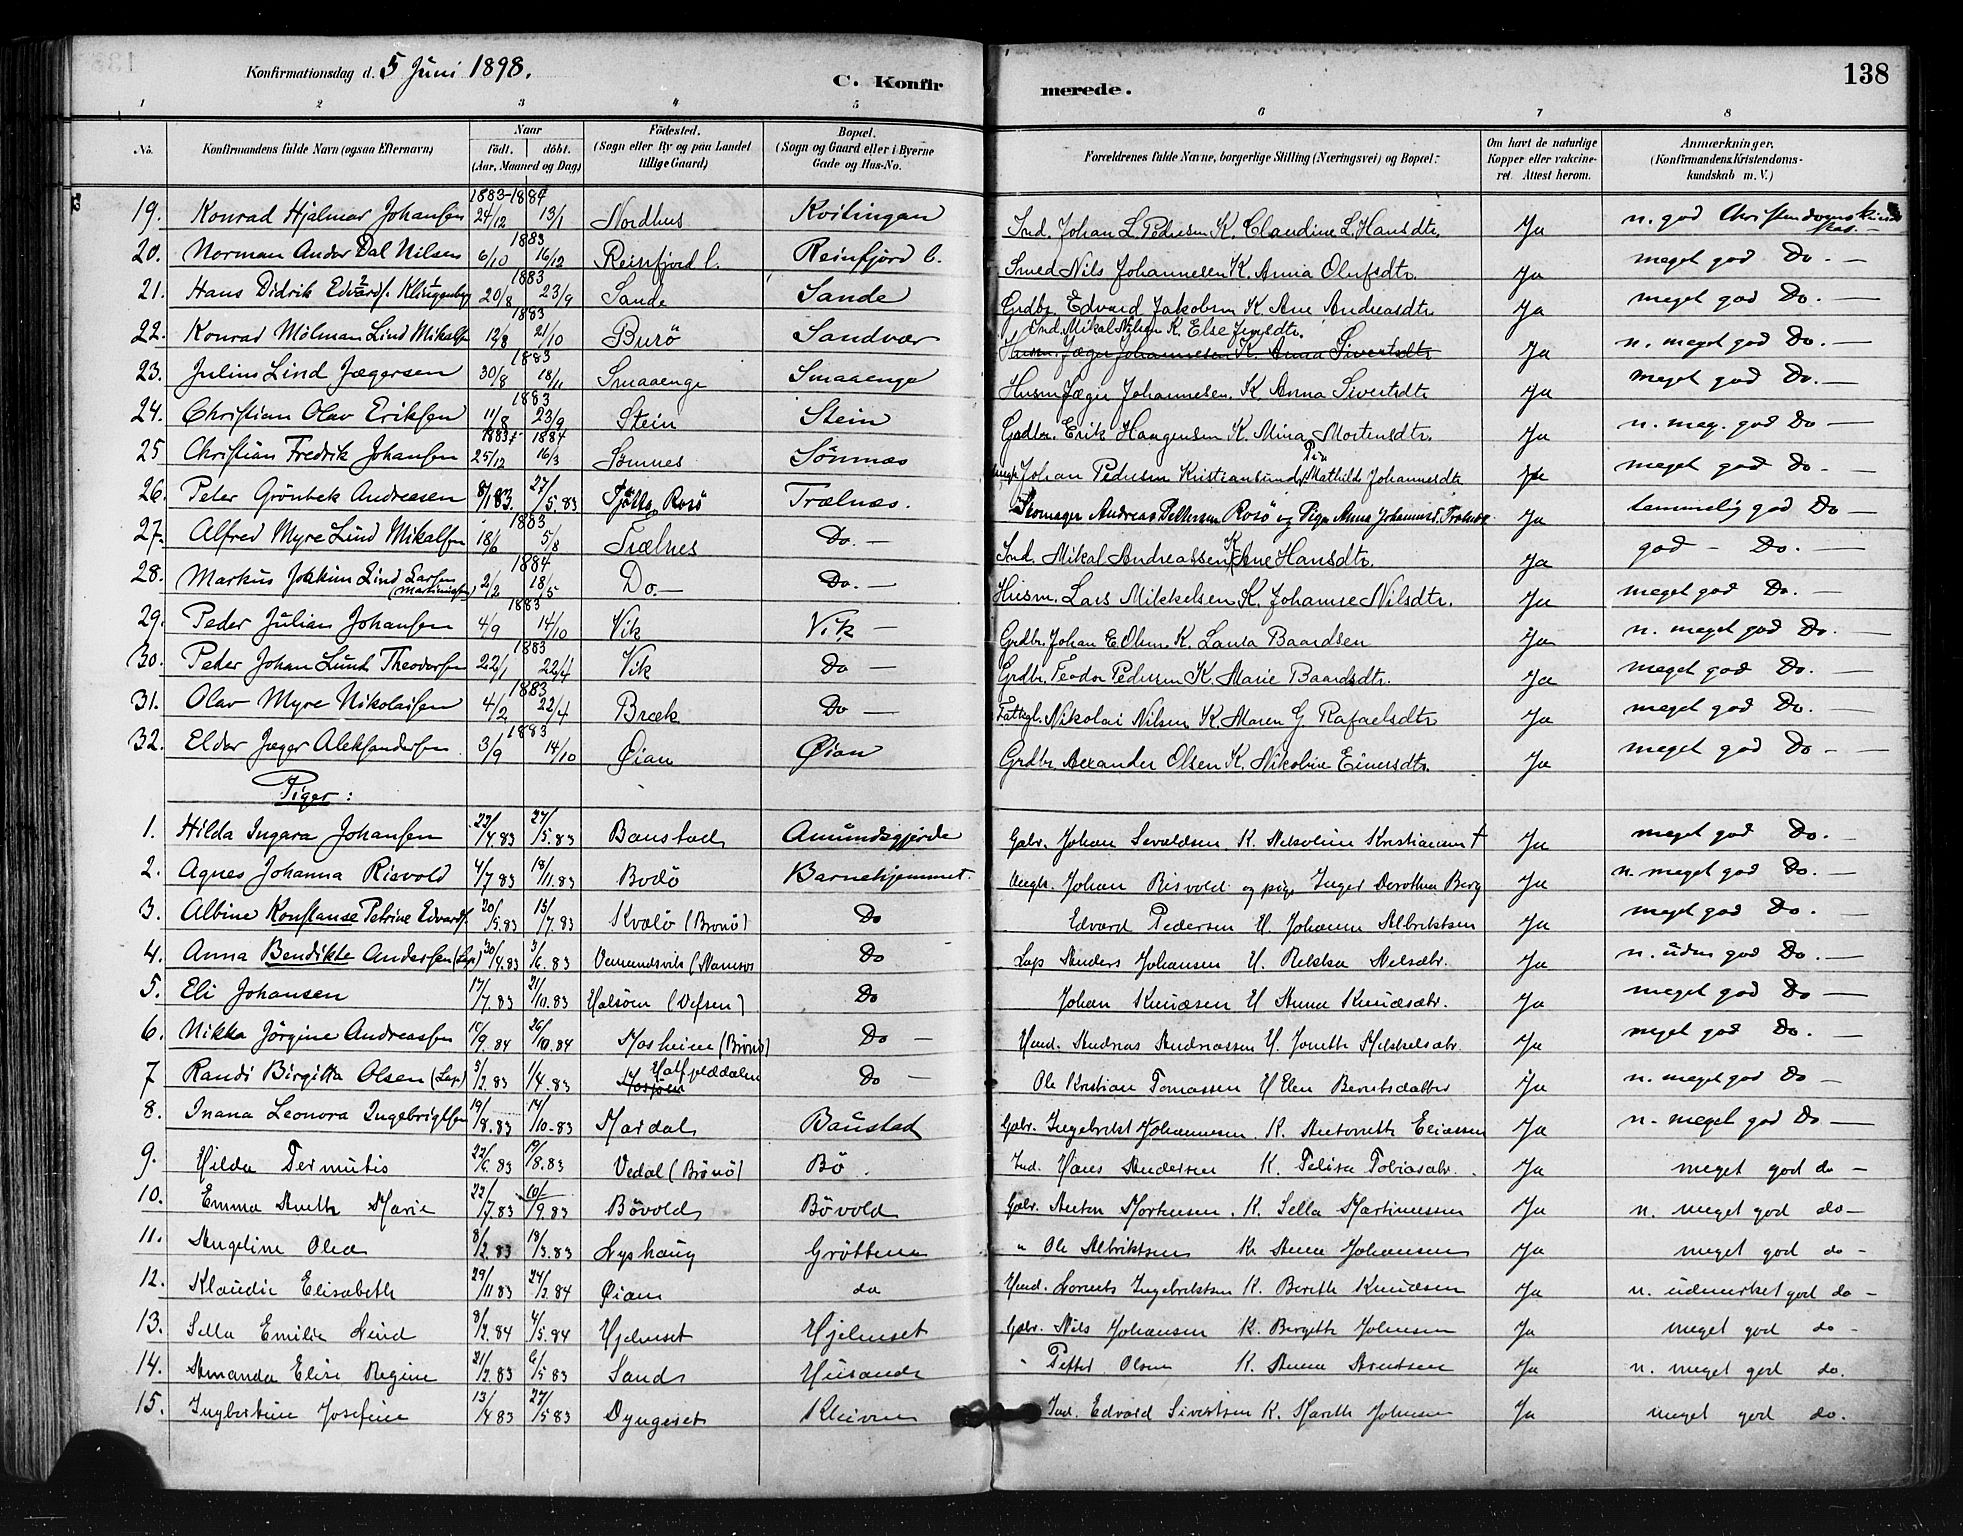 Konfirmationsdag d. 5 Juni 1898.
C. Konfirmerede.
138
1 2 3 4 5 6 7 8
No. Konfirmandens fulde Navn (ogsaa Efternavn) Naar født. døbt. (Aar, Maaned og Dag) Födested. (Sogn eller By og paa Landet tillige Gaard) Bopæl. (Sogn og Gaard eller i Byerne Gade og Hus-No. Forældrenes fulde Navne, borgerlige Stilling (Næringsvei) og Bopæl: Om havt de naturlige Kopper eller vakcineret. Attest herom. Anmærkninger. (Konfirmandens Kristendomskundskab m. V.)
19. Konrad Hjalmar Johansen 1883-1884 24/12 13/1 Nordhus Kvilingan Ind. Johan L Pedersen K. Claudine L. Hansdtr. Ja n. god Christendomskundskab. —
20. Norman Ander Dal Nilsen 1883 6/10 16/12 Reinfjord l. Reinfjord l. Smed Nils Johannesen K. Anna Olufsdtr. Ja meget god Do. —
21. Hans Didrik Edvards. Klinggenberg 1883 20/8 23/9 Sande Sande Grdbr. Edvard Jakobsen K. Ane Andreasdtr Ja meget god Do. —
22. Konrad Mölman Lind Mikalsen 1883 12/8 21/10 Burö Sandvær Ind. Mikal Nilsen K. Else Ja n. meget god Do. —
Husm. Jæger Johannesen K. Anna Sivertsdtr
23. Julius Lind Jægersen 1883 30/8 18/11 Smaaenge Smaaenge Husm. Jæger Johannesen. K. Anna Sivertsdtr Ja meget god Do. —
24. Christian Olav Eriksen 1883 11/8 23/9 Stein Stein Grdbr. Erik Haagensen K. Mina Mortensdtr. Ja n. meg. god Do —
25 Christian Fredrik Johansen 1883 1884 25/12 16/3 Sömnes Sömnæs Johan Pedersen Kristiansund, Pige Mathilde Johannesdtr Ja meget god Do. —
26. Peter Grönbek Andreasen 8/1 83. 27/5.83 Tjøtta Rosö Trælnæs. Skomager Andreas Pettersen Rosö og Pige Anna Johannesd. Trælnæs Ja temmelig god Do —
27. Alfred Myre Lind Mikalsen 1883 18/6 5/8 Trælnes Do. — Ind. Mikal Andreassen K. Ane Hansdtr. Ja god — Do. —
28. Markus Joakim Lind Larsen (Martiniussen) 1884 2/2 18/5 Do. — Do. — Husm. Lars Mikkelsen K. Johanne Nilsdtr. Ja meget god Do. —
29. Peder Julian Johansen 1883 4/9 14/10 Vik Vik — Grdbr. Johan E Olsen K. Laura Baardsen Ja n. meget god Do. —
30. Peter Johan Lund Theodorsen 1883 22/1 22/4 Vik Do — Grdbr. Teodor Pedersen K. Marie Baardsdtr. Ja meget god Do. —
31. Olav Myre Nikolaisen 1883 4/2 22/4 Bræk Do — Fattigl. Nikolai Nilsen K. Maren G. Rafaelsdtr Ja meget god Do. —
32. Elder Jæger Aleksandersen 1883 3/9 14/10 Øian Øian Grdbr. Alexander Olsen K. Nikoline Einersdtr. Ja meget god Do. —
Piger:
1. Hilda Ingara Johansen 22/4.83 27/5.83 Baustad Amundsgjerde Gdbr. Johan Sevaldsen K. Nikoline Kristiansen † Ja meget god Do. —
2. Agnes Johanna Risvold 4/7 83 18/11.83 Bodö Barnehjemmet. Johan Risvold og pige Inger Dorothea Berg Ja n. meget god Do. —
3. Albine Konstanse Petrine Edvards. 20/5.83 13/7.83 Kvalö (Brönö) Do Edvard Pedersen H. Johanna Albriktsen Ja meget god Do. —
4. Anna Bendikte Andersen (Lap) 30/4.83 3/6.83 Vemundsvik (Namsos Do Lap Anders Johansen H. Nelsdtr. Ja n. udm god Do —
5. Eli Johansen 17/7.83 21/10.83 Halsöen (Vefsen) Do Johan Knudsen H Anna Knudsdtr. Ja meget god Do —
6. Nikka Jörgine Andreassen 10/9.84 26/10.84 Mosheim (Brönö) Do — Husm. Andreas Andreassen H. Joneth Mikkelsdtr. Ja meget god Do. —
7 Randi Birgitta Olsen (Lap.) 3/2.83 1/4.83 Hatfjelddalen Mosjöen Do — Ole Kristian Tomassen H Elen Berntsdatter Ja n. meget god Do
8. Inana Leonora Ingebrigtsen 19/8.83 14/10-83 Mardal Baustad Gdbr. Ingebrikt Johannesen. K. Antonette Eliassen Ja n. meget god Do —
9. Hilda Termutis 22/6.83 19/8.83 Vedal (Brönö) Bö. Ind. Hans Andersen K. Felisa Tobiasdtr. Ja meget god do —
10. Emma Aneth Marie 22/7.83 10/9.83 Bövold Bövold Gdbr. Anton Mortensen. K. Sella Martinussen Ja n. meget god do —
11. Angeline Olea 8/2.83 18/3.83 Nyshaug Gröttem " Ole Albriktsen K. Anna Johansen Ja meget god do —
12. Klaudie Elisabeth 29/11 83 24/2 84 Øian do Husm. Lornts Ingebriktsen K. Bereth Knudsen Ja n. udmerket god do —
13. Sella Emilie Lind 8/2.84 4/5.84 Hjelmset Hjelmset Gdbr. Nils Johansen K. Birgitte Johnsen Ja meget god do —
14. Amanda Elise Regine 21/2.83 6/5 83 Sand Husand " Petter Olsen K. Anna Arntsen Ja n. meget god do.
15. Ingbertine Josefine 13/4 83 27/5 83 Dyngeset Kleiven Ind. Edvard Sivertsen K. Mareth Johnsen Ja meget god do.